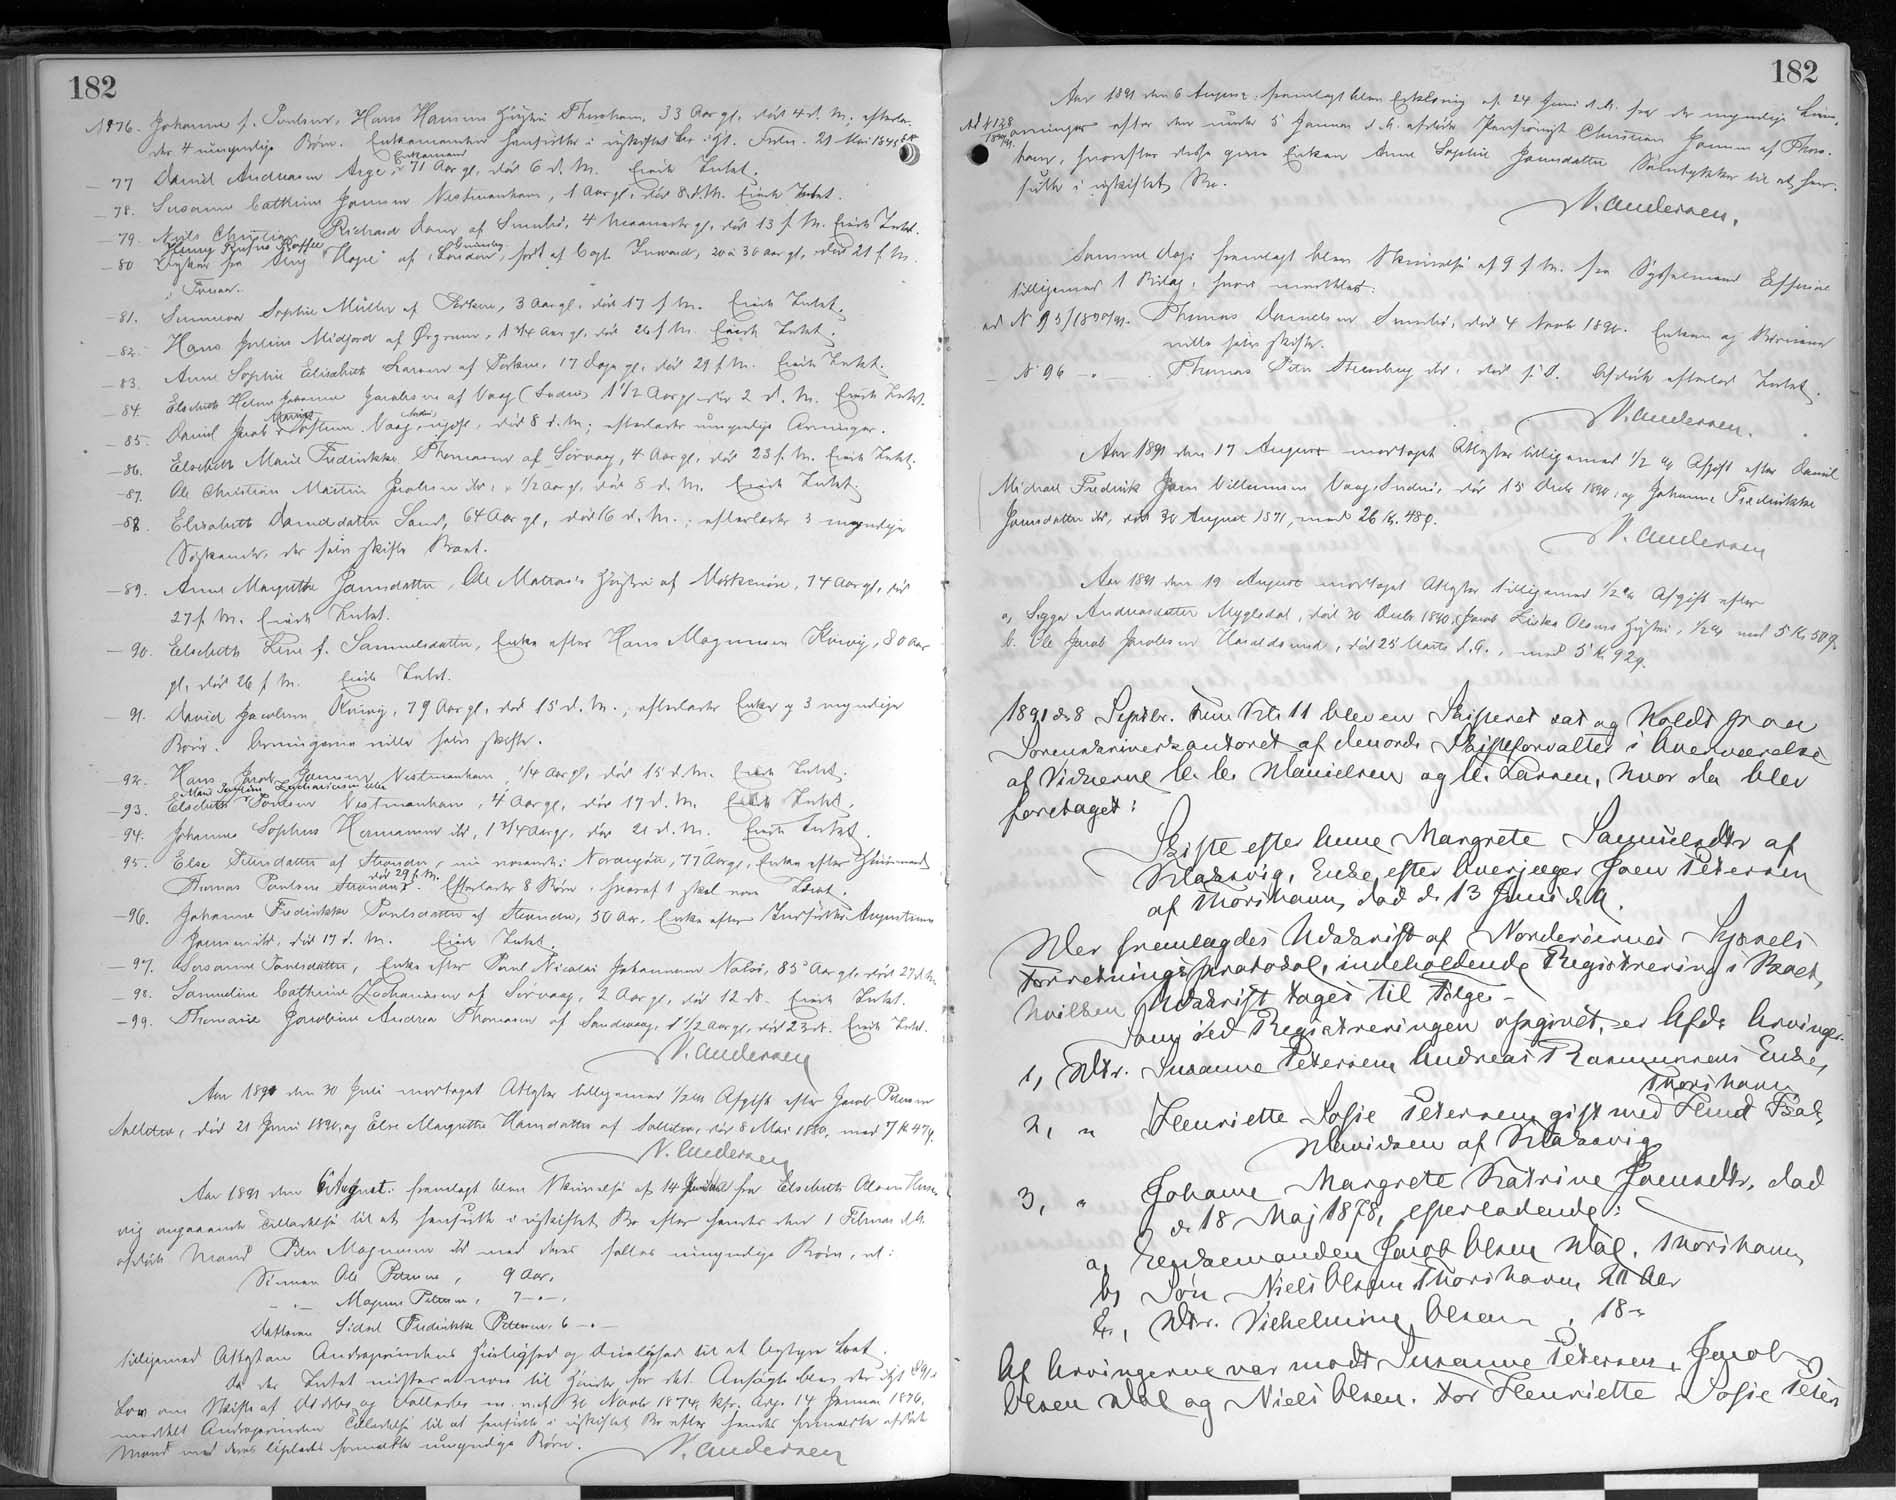 182
N 76. Johanne f. Poulsen, Hans Hansens Hustru Thorshavn, 33 Aar gl, død 4 d. M., efterla-
der 4 umyndige Børn. Enkemanden hensidder i uskiftet Bo
— 77 Daniel Andreasen Arge, Enkemand 71 Aar gl, død 6 d. M. Eiede Intet.
— 78. Susanne Cathrine Jensen Vestmanhavn, 1 Aar gl, død 8 d. M. Eiede Intet.
— 79. Niels Christian Richard Dam af Sumbø, 4 Maaneder gl, død 13 f. M. Eiede Intet.
— 80 Henry Rufus
"Hope" af London, ført af Capt. 20 a 30 Aar gl, død 21 f. M.
— 81. Sunneva Sophie Müller af 3 Aar gl, død 17 f. M. Eiede Intet.
— 82. Hans Julius Midjord af 1 3/4 Aar gl, død 26 f. M. Eiede Intet.
— 83. Anne Sophie Elisabeth Larsen af Porkere, 17 Dage gl, død 29 f. M. Eiede Intet.
— 84. Elsebeth Helene Johanne Jacobsen af Vaag (Suderø) 1 1/2 Aar gl død 2 d. M. Eiede Intet.
— 85. Daniel Jacob Vaag, ugift, død 8 d. M.; efterlader umyndige Arvinger.
— 86. Elsebeth Marie Fredrikke Thomasen af Sørvaag, 4 Aar gl, død 23 f. M. Eiede Intet.
— 87. Ole Christian Martin Jacobsen ibd., 1/2 Aar gl, død 8 d. M. Eiede Intet.
— 88. Elisabeth Davidsdatter Sand, 64 Aar gl, død 16 d. M.; efterlader 3 myndige
Søskende, der selv skifte Boet.
— 89. Anne Margrethe Joensdatter, Ole Hustru af 74 Aar gl, død
27 f. M. Eiede Intet.
— 90. Elsebeth Lene f. Samuelsdatter, Enke efter Hans Magnussen Kvivig, 80 Aar
gl, død 26 f. M. Eiede Intet.
— 91. David Jacobsen Kvivig, 79 Aar gl, død 15 d. M., efterlader Enke og 3 myndige
Børn. Arvingerne ville selv skifte.
— 92. Hans Jacob Jensen Vestmanhavn, 1/4 Aar gl, død 15 d. M. Eiede Intet.
— 93. Elsebeth Poulsen Vestmanhavn, 4 Aar gl, død 17 d. M. Eiede Intet.
— 94. Johannes Sophus Hermansen ibd, 1 3/4 Aar gl, død 21 d. M. Eiede Intet.
95. Else Petersdatter af Strender, 77 Aar gl, Enke efter
Thomas Poulsen død 29 f. M. Efterlader 8 Børn, hvoraf 1 skal være
— 96. Johanne Fredrikke Poulsdatter af Strender, 50 Aar, Enke efter
død 17 d. M. Eiede Intet.
— 97. Susanne Poulsdatter, Enke efter Poul Nicolai Johannesen Nolsø, 85 Aar gl, død 27 d. M.
— 98. Samueline Cathrine Zachariasen af Sørvaag, 2 Aar gl, død 12 d. Eiede Intet.
— 99. Thomasie Jacobine Andrea Thomasen af Sandevaag, 1 1/2 Aar gl, død 23 d. Eiede Intet.
N. Andersen
Aar 1891 den 30 Juli modtaget Attester tilligemed 1/2 % Afgift efter Jacob Petersen
død 21 Juni 1890, og Else Margrethe Hansdatter af død 8 Mai 1880, med 7 K 47 ø.
N. Andersen
Aar 1891 den 6 August: fremlagt blev Skrivelse af 14 fra Elsebeth Olsen
vig angaaende Tilladelse til at hensidde i uskiftet Bo efter hendes den 1 Februar d. A.
afdøde Mand Peter Magnussen ibd med deres fælles umyndige Børn, nl:
Sønnen Ole Petersen, 9 Aar,
— " — Magnus Petersen, 7 — " —,
Datteren Sidsel Fredrikke Petersen, 6 — " —
tilligemed Attest om Andragerindens Huslighed og Duelighed til at bestyre Boet.
Da der Intet vidstes at være til Hinder for det Ansøgte blev der
Lov om Skifte af Dødsbo og Fællesbo m. v. af 30 Novb 1874, kfr. 14 Januar 1876,
meddelt Andragerinden Tilladelse til at hensidde i uskiftet Bo efter hendes fornævnte afdøde
Mand med deres ligeledes fornævnte umyndige Børn.
N. Andersen
182
Aar 1891 den 6 August: fremlagt blev Erklæring af 24 Juni d. A. fra de myndige Livs-
arvinger efter den under 5 Januar d. A. afdøde Pensionist Christian Jensen af Thors-
havn, hvorefter disse give Enken Anne Sophie Joensdatter Samtykke til at hen-
sidde i uskiftet Bo.
N. Andersen.
Samme Dag: fremlagt blev Skrivelse af 9 f. M. fra Sysselmand Effersøe
tilligemed 1 Bilag, hvori meddeltes:
ad N 95/1890/91. Thomas Danielsen Sumbø, død 4 Novb 1890. Enken og Børnene
ville selv skifte.
— N 96 — " — Thomas Peter ibd, død s. D. Afdøde efterlod Intet.
N. Andersen.
Aar 1891 den 17 August modtaget Attester tilligemed 1/2 % Afgift efter Daniel
Michael Fredrik Joen Villumsen Vaag, Suderø, død 15 Decb 1890, og Johanne Fredrikke
Joensdatter ibd, død 30 August 1871, med 26 Kr. 48 ø.
N. Andersen
Aar 1891 den 19 August modtaget Attester tilligemed 1/2 % Afgift efter
a, Sigga Andreasdatter Mygledal, død 30 Decb 1890, Jacob Olsens Hustru, 1/2 % med 5 Kr 50 ø.
b. Ole Jacob Jacobsen Haraldssund, død 25 Marts d. A., med 5 K 92 ø.
1891 d. 8 Septbr. Kl. 11 blev en Skifteret sat og holdt paa
Sorenskriverkontoret af den ord. Skifteforvalter i Overværelse
af Vidnerne C. C. Danielsen og C. Larsen, hvor da blev
foretaget:
Skifte efter Anne Margrete Samuelsdtr af
Klaksvig, Enke efter Overjæger Joen Petersen
af Thorshavn, død d. 13 Juni d. A.
Der fremlagdes Udskrift af Norderøernes Syssels
Forretningsprotokol, indeholdende Registrering i Boet,
hvilken Udskrift tages til Følge.
Som ved Registreringen opgivet, er Afd. Arvinger:
1, Dtr. Susanne Petersen, Andreas Rasmussens Enke,
Thorshavn
2, " Henriette Sofie Petersen, gift med
Davidsen af Klaksvig
3, " Johanne Margrete Katrine Joensdtr, død
d. 18 Maj 1878, efterladende:
a, Enkemanden Jacob Olsen Dal, Thorshavn
b, Søn Niels Olsen Thorshavn, 20 Aar
c, Dtr. Vilhelmine Olsen, 18 "
Af Arvingerne var mødt Susanne Petersen, Jacob
Olsen Dal og Niels Olsen. For Henriette Sofie Peter